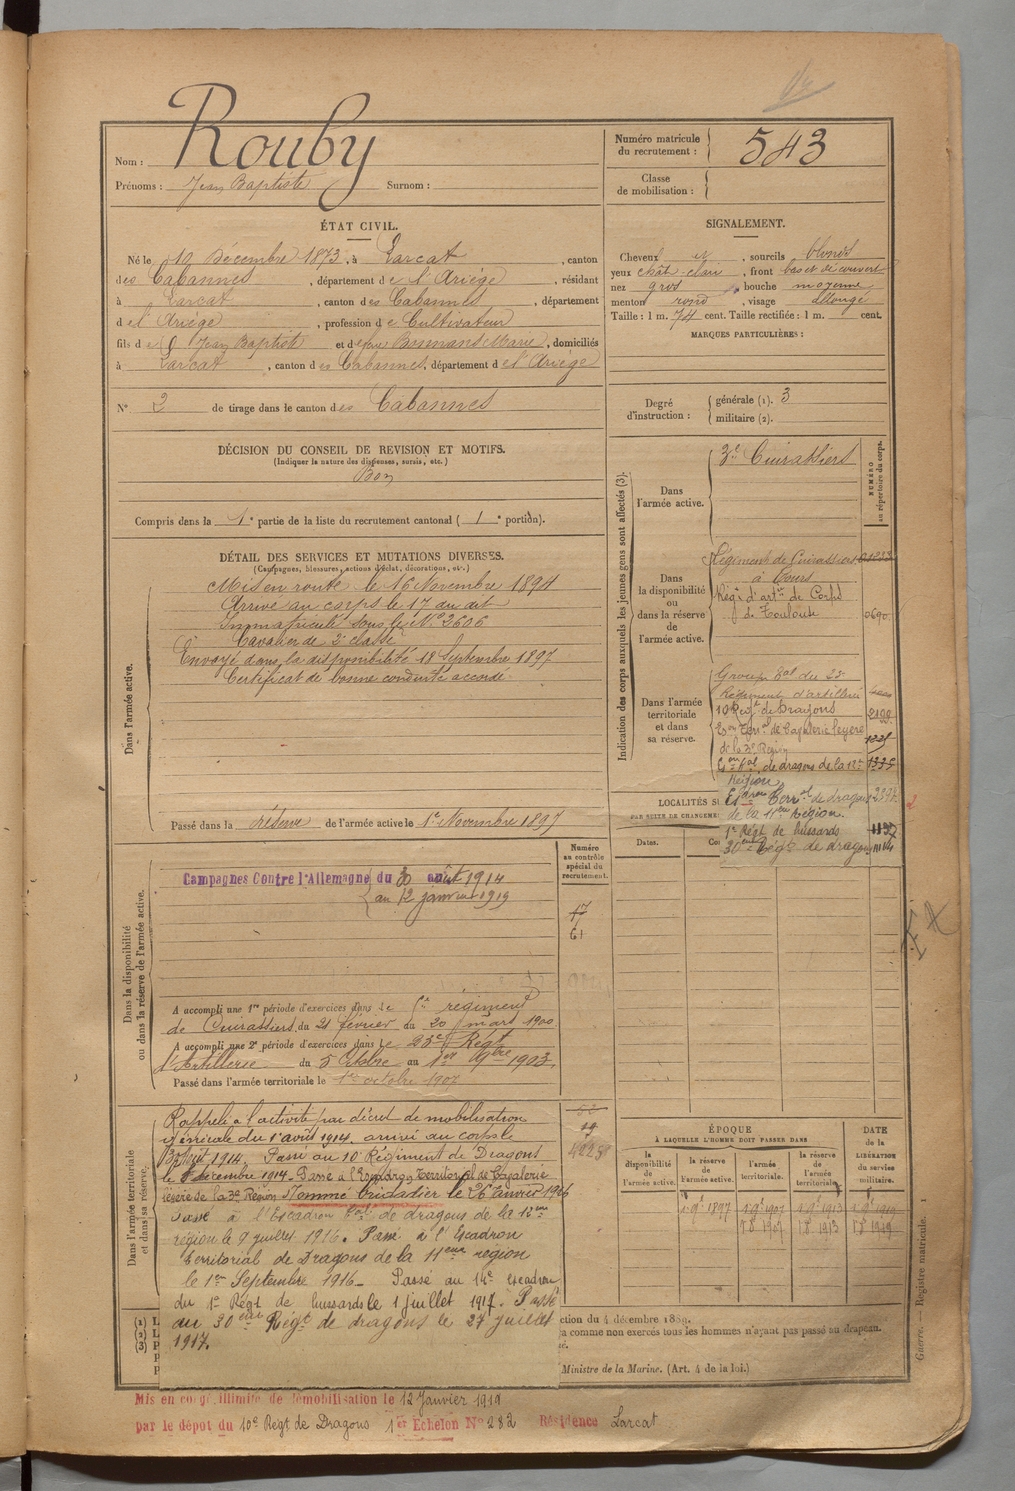 Rouby
Nom :
Prénoms : Jean Baptiste Surnom :
Numéro matricule du recrutement : 543
Classe de mobilisation :
ÉTAT CIVIL.
Né le 19 Décembre 1873, à Larcat, canton
des Cabannes, département de l'Ariège, résidant
à Larcat, canton des Cabannes, département
de l'Ariège, profession de Cultivateur
fils de Jean Baptiste et de Marie, domiciliés
à Larcat, canton des Cabannes, département de l'Ariège
N° 2 de tirage dans le canton des Cabannes
SIGNALEMENT.
Cheveux et, sourcils blonds
yeux chât-clair, front bas et découvert
nez gros, bouche moyenne
menton rond, visage allongé
Taille : 1 m. 74 cent. Taille rectifiée : 1 m. cent.
MARQUES PARTICULIÈRES :
Degré d'instruction : générale (1). 3
militaire (2).
DÉCISION DU CONSEIL DE REVISION ET MOTIFS.
(Indiquer la nature des dispenses, sursis, etc.)
Bon
Compris dans la 1e partie de la liste du recrutement cantonal (1e portion).
DÉTAIL DES SERVICES ET MUTATIONS DIVERSES.
(Campagnes, blessures, actions d'éclat, décorations, etc.)
Dans l'armée active.
Mis en route le 16 Novembre 1894
Arrivé au corps le 17 du dit
Immatriculé sous le N° 2606
Cavalier de 2e classe
Envoyé dans la disponibilité 18 Septembre 1897
Certificat de bonne conduite accordé.
Passé dans la réserve de l'armée active le 1er Novembre 1897
Indication des corps auxquels les jeunes gens sont affectés (3).
NUMÉRO au répertoire du corps.
Dans l'armée active.
3e Cuirassiers
Dans la disponibilité ou dans la réserve de l'armée active.
Régiment de Cuirassiers
à Tours
Régt d'artie de Corps
de Toulouse 0690
Dans l'armée territoriale et dans sa réserve.
Groupe Bal du 23e
Régiment d'artillerie
10 Regt de Dragons 2199
Eson Terral de Cavalerie légère 1331
de la 3e Région
Eson Tal de dragons de la 12e 1335
Région
Esdron Terral de dragons
de la 11eme Région.
1er Régt de hussards 1137
30eme Régt de dragons 1114
LOCALITÉS SU
PAR SUITE DE CHANGEME
Dates.
Dans la disponibilité ou dans la réserve de l'armée active.
Numéro au contrôle spécial du recrutement.
Campagnes Contre l'Allemagne du 30 août 1914
au 12 janvier 1919
17
61
A accompli une 1re période d'exercices dans le régiment
de Cuirassiers du 21 février au 20 mars 1900
A accompli une 2e période d'exercices dans le 23e Régt
d'Artillerie du 5 Octobre au 1er 9bre 1903.
Passé dans l'armée territoriale le 1er octobre 1907
Dans l'armée territoriale et dans sa réserve.
Rappelé à l'activité par décret de mobilisation
générale du 1er août 1914. arrivé au corps le
30 Août 1914. Passé au 10e Régiment de Dragons
le décembre 1914. Passé à l'Escadron Territorial de Cavalerie
légère de la 3e Région Nommé brigadier le 26 Janvier 1916
Passé à l'Escadron Tal de dragons de la 12eme
région le 9 juillet 1916. Passé à l'Escadron
Territorial de Dragons de la 11eme région
le 1er Septembre 1916 - Passé au 14e escadron
du 1er Régt de hussards le 1 juillet 1917. Passé
au 30eme Régt de dragons le 27 juillet
1917.
19
ÉPOQUE
À LAQUELLE L'HOMME DOIT PASSER DANS
la disponibilité de l'armée active.
la réserve de l'armée active.
l'armée territoriale.
la réserve de l'armée territoriale.
DATE de la LIBÉRATION du service militaire.
1 9e 1897 1 9e 1907 1 9e 1913 1 9e 1919
1 8e 1907 1 8e 1913 1 8e 1919
ction du 4 décembre 1889.
a comme non exercés tous les hommes n'ayant pas passé au drapeau.
Ministre de la Marine. (Art. 4 de la loi.)
Guerre. — Registre matricule. 1
Mis en congé illimité de démobilisation le 12 Janvier 1919
par le dépot du 10e Régt de Dragons 1er Echelon N° 282 Résidence Larcat